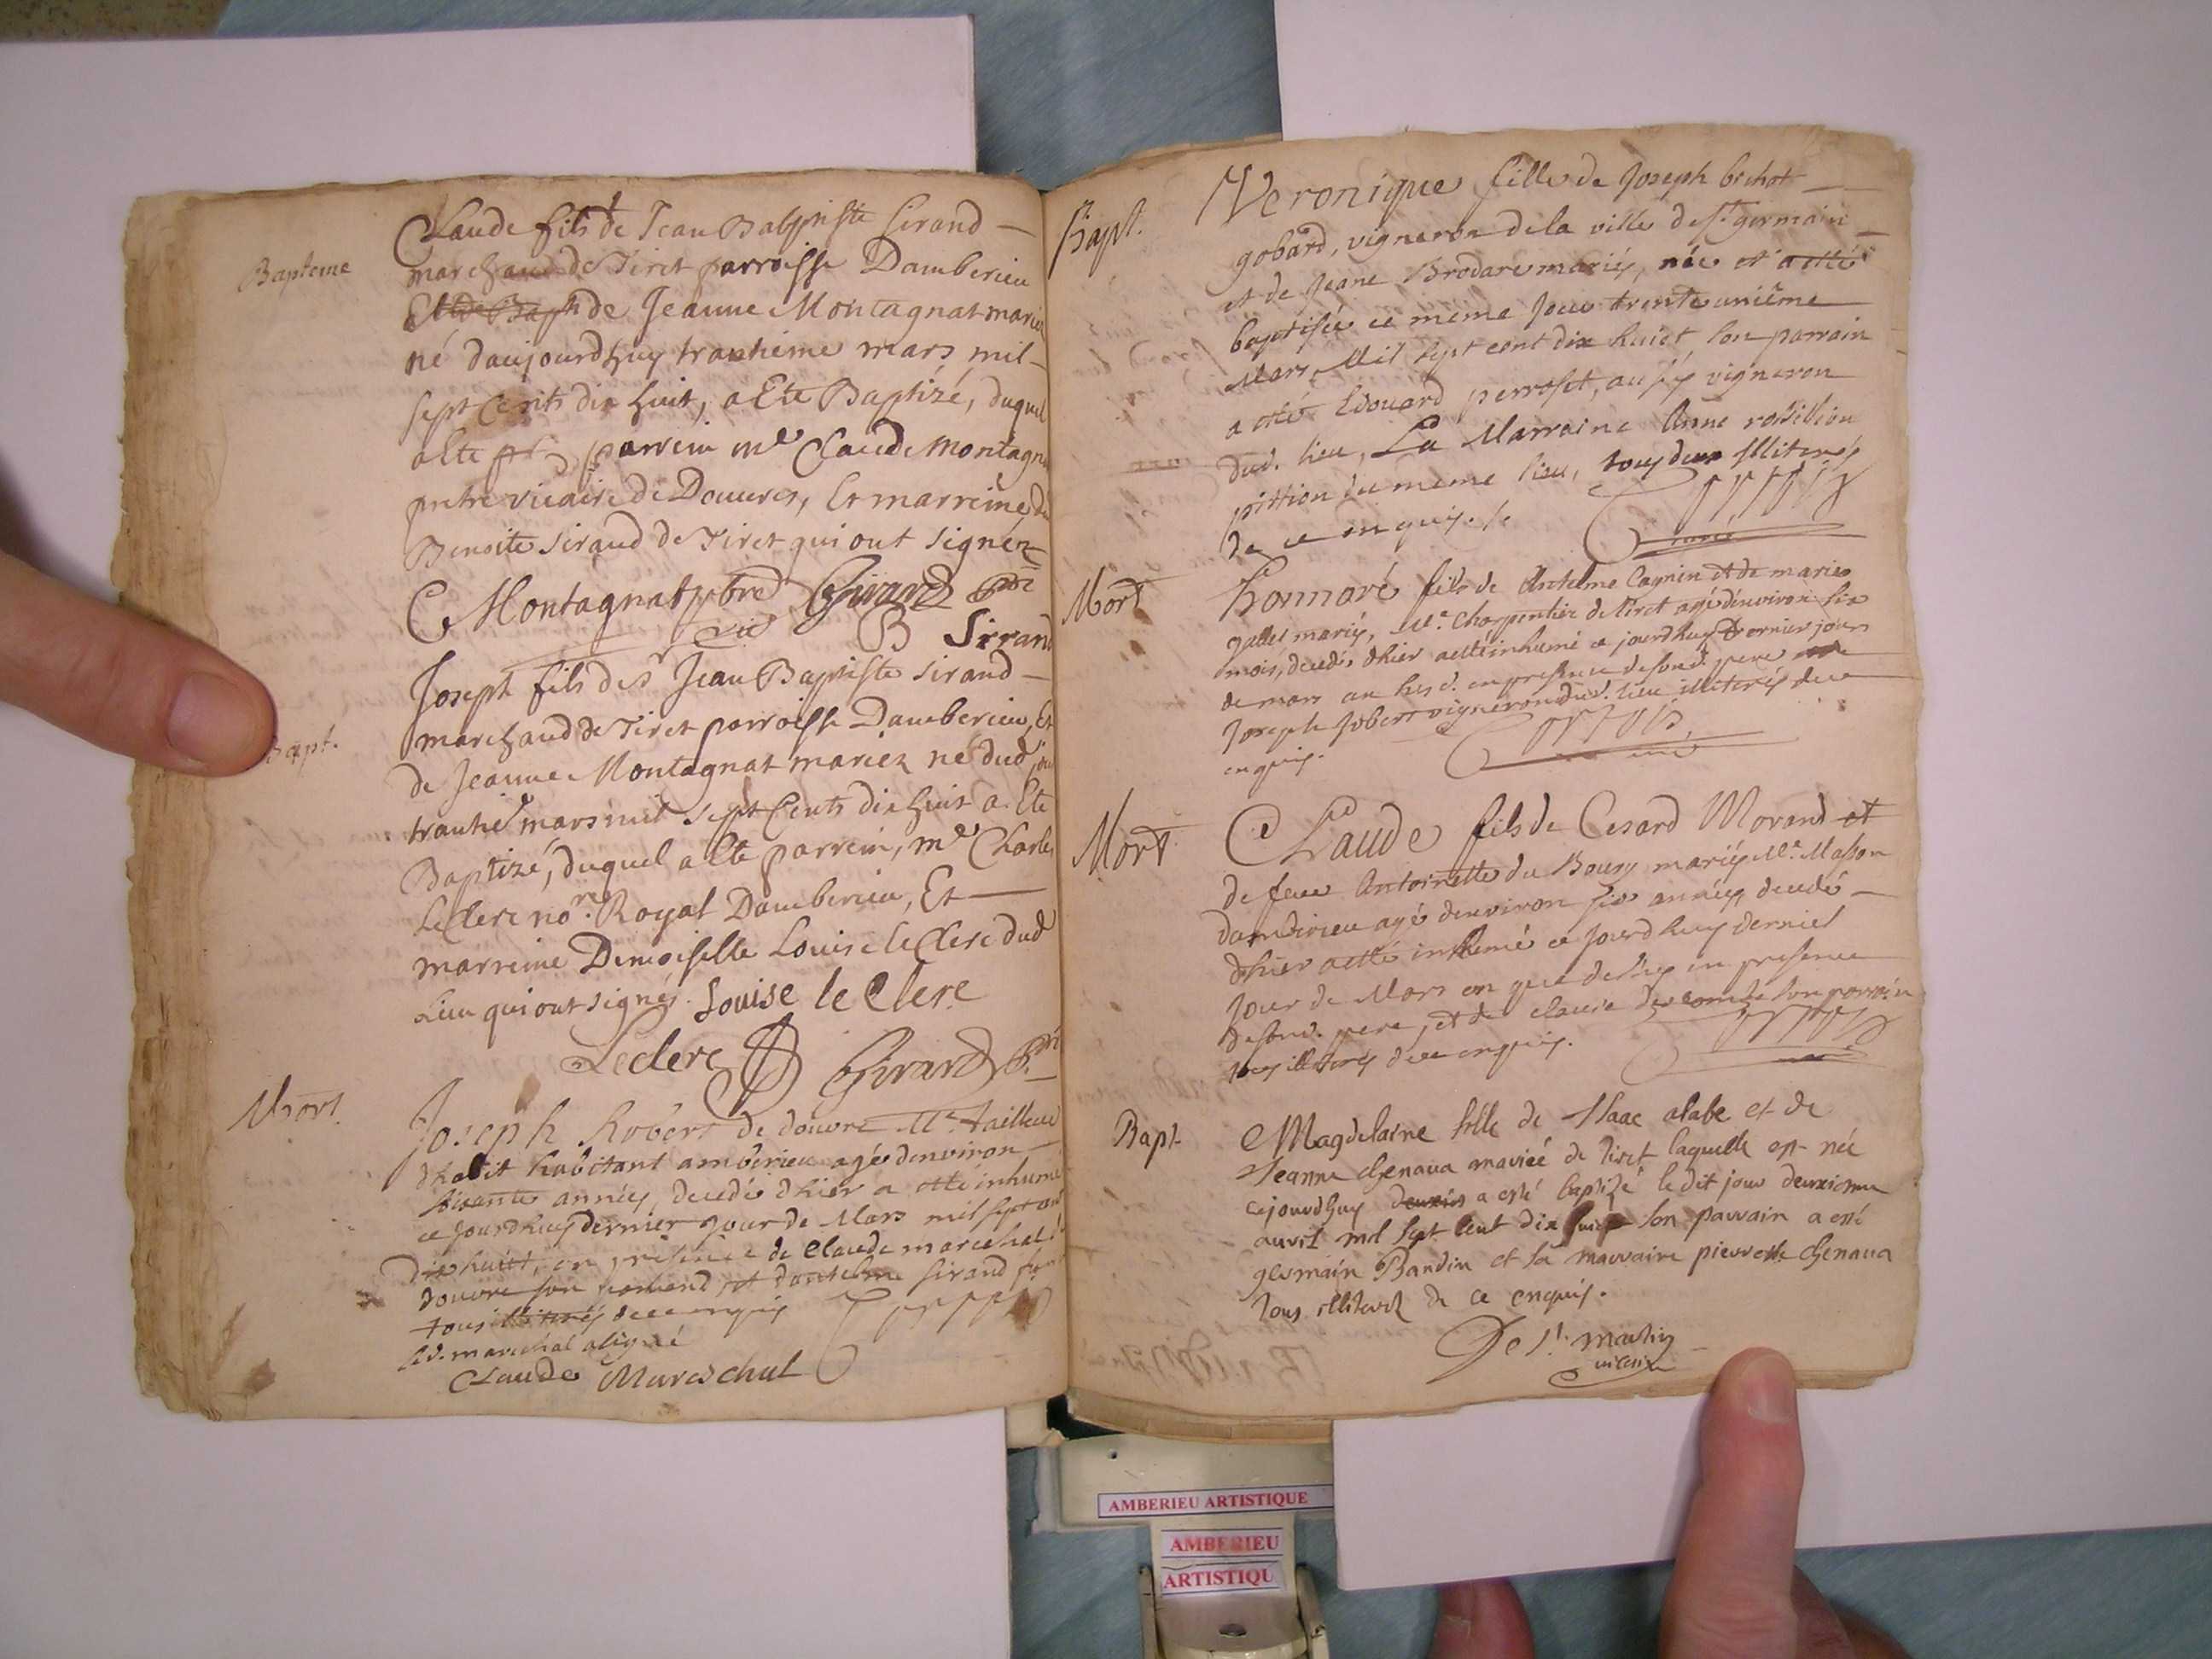 Bapteme
Claude fils de Jean Baptiste Sirand
marchand de Tiret parroisse Damberieu
de Jeanne Montagnat mariez
né daujourdhuy trantieme mars mil
sept Cents dix huit, a Ete Baptizé, duquel
a Ete parrein me Claude Montagnat
pretre vicaire de Douvres, Et marreine
Benoite Siraud de Tiret qui ont Signéz
C Montagnat pbre Girard Ptre
vic B Sirrand
Bapt.
Joseph fils de sr Jean Baptiste Sirand
marchand de Tiret parroisse Damberieu, Et
de Jeanne Montagnat mariez né dud jour
trantie mars mil Sept Cents dix huit a Ete
Baptizé, duquel a Ete parrein, me Charles
LeClerc nore Royal Damberieu, Et
marreine Demoiselle Louise le Clerc dud
Lieu qui ont signés. Louise le Clerc
Leclerc Girard Ptre
Mort
Joseph Robert de douvre Me tailleur
dhabit habitant amberieu agé denviron
soixante années, decedé dhier a etté inhumé
ce jourdhuy dernier jour de Mars mil sept cent
dix huict, en presence de Claude marechal
douvre son et dantelme sirand
tous illiterés de ce enquis
led. marechal a signé
Claude Mareschal
Bapt.
Veronique fille de Joseph brchot
gobard, vigneron de la ville de st germain
et de Jeane Brodare mariés, née et a etté
baptisée ce meme jour trente uniême
Mars Mil sept cent dix huict son parrain
a etté Edouard perroset, aussy vigneron
dud. lieu, La Marraine Anne rossillion
pittion du meme lieu, tous deux illiterés
de ce enquis. /.
curé
Mort
Honnoré fils de Anthelme Cagnin et de marie
gallet mariés, Me Charpentier de tiret agé denviron six
mois, decedé dhier a etté inhumé ce jourdhuy dernier jour
de mars an presence de sond. pere
Joseph Jobert vigneron dud. lieu illiterés de ce
enquis.
curé
Mort
Claude fils de Cesard Morand et
de feue Antoinette du Bourg mariés Me Masson
dambrieu agé denviron six années, decedé
dhier a etté inhumé ce jourdhuy dernier
jour de Mars en presence
de sond. pere, et de claude son parrain
tous illiterés de ce enquis.
Bapt
Magdelaine fille de Isaac alabe et de
Jeanne Chenava mariée de Tiret laquelle est née
cejourdhuy a esté baptizé le dit jour deuxiesme
avril mil sept cent dix huict son parrain a esté
germain Bandin et la marraine pierrette Chenava
tous illiterez de ce enquis.
De St. martin
vicaire
AMBERIEU ARTISTIQUE
AMBERIEU
ARTISTIQU